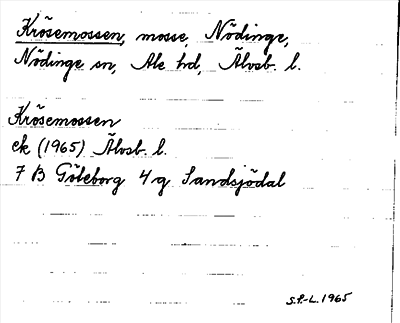 Krösemossen, mosse, Nödinge,
Nödinge sn, Ale hd, Älvsb. l.
Krösemossen
ek (1965) Älvsb. l.
7 B Göteborg 4 g Sandsjödal
S.P.-L. 1965